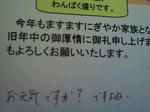 わんぱく盛りです。
今年もますますにぎやか家族とな
旧年中の御厚情に御礼申し上げま
もよろしくお願いいたします。
お元気ですか？